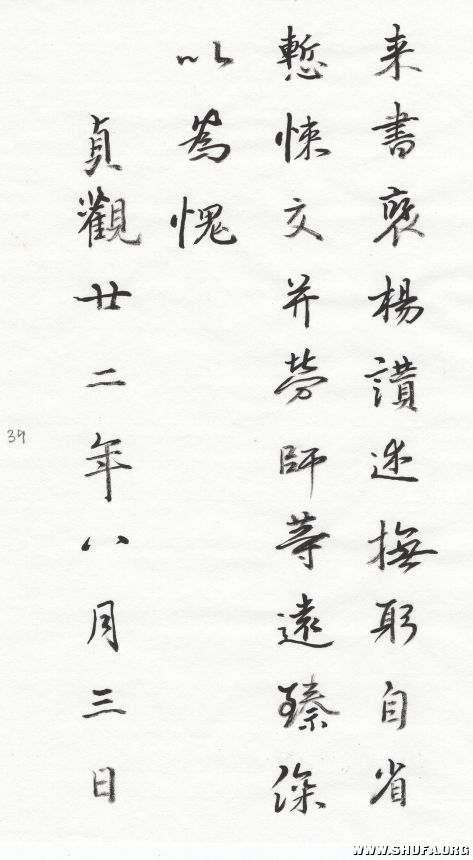 来書褒楊讃述撫躬自省
慙悚交并勞師等遠臻深
以為愧
貞觀廿二年八月三日
39
WWW.SHUFA.ORG